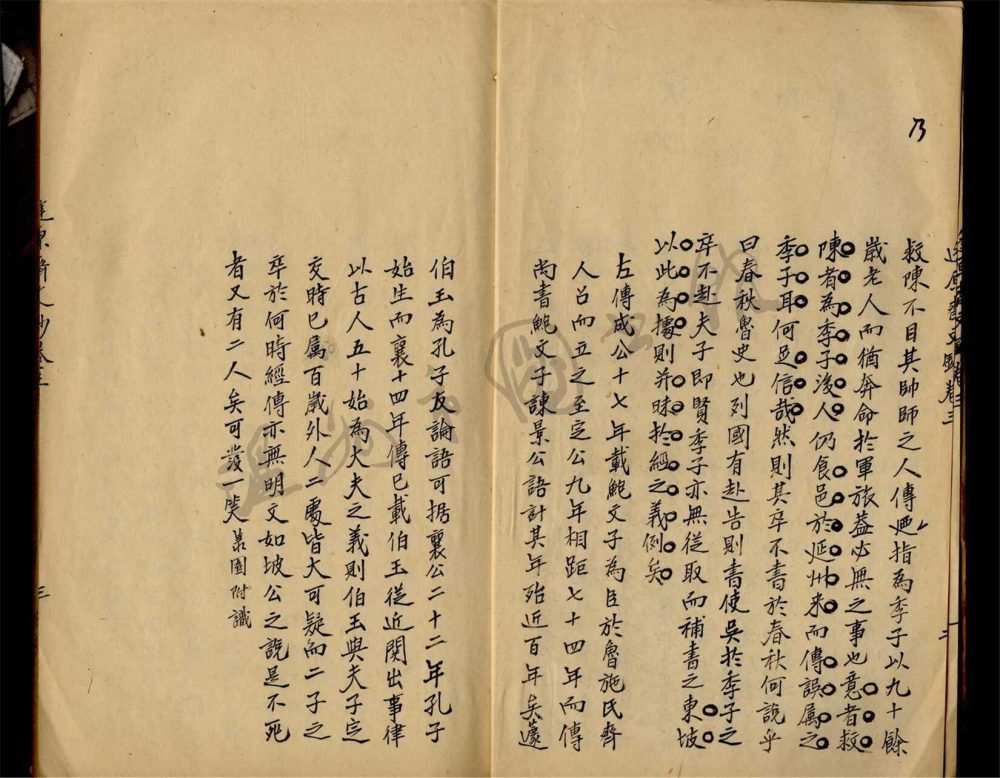 乃
救陳不目其帥師之人傳廼指為季子以九十餘
歲老人而猶奔命於軍旅蓋必無之事也意者救
陳者為季子後人仍食邑於延州来而傳誤属之
季子耳何足信哉然則其卒不書於春秋何説乎
曰春秋魯史也列國有赴告則書使吳於季子之
卒不赴夫子即賢季子亦無從取而補書之東坡
以此為據則并昧於經之義例矣
左傳成公十七年載鮑文子為臣於魯施氏齊
人召而立之至定公九年相距七十四年而傳
尚書鮑文子諫景公語計其年殆近百年矣蘧
伯玉為孔子友論語可据襄公二十二年孔子
始生而襄十四年傳已載伯玉從近関出事律
以古人五十始為大夫之義則伯玉與夫子定
交時已属百歲外人二處皆大可疑而二子之
卒於何時經傳亦無明文如坡公之説是不死
者又有二人矣可發一笑 園附識
三